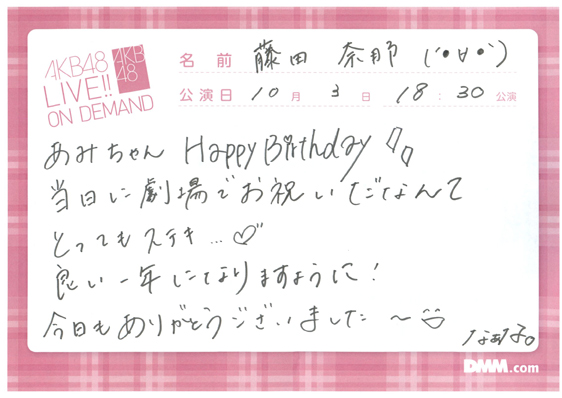 AKB48
LIVE!!
ON DEMAND
AKB
48
名前 藤田 奈那 (´•∀•`)
公演日 10月 3日 18:30公演
あみちゃん Happy Birthday
当日に劇場でお祝いだなんて
とってもステキ…♡
良い一年になりますように!
今日もありがとうございました〜
なぁな。
DMM.com